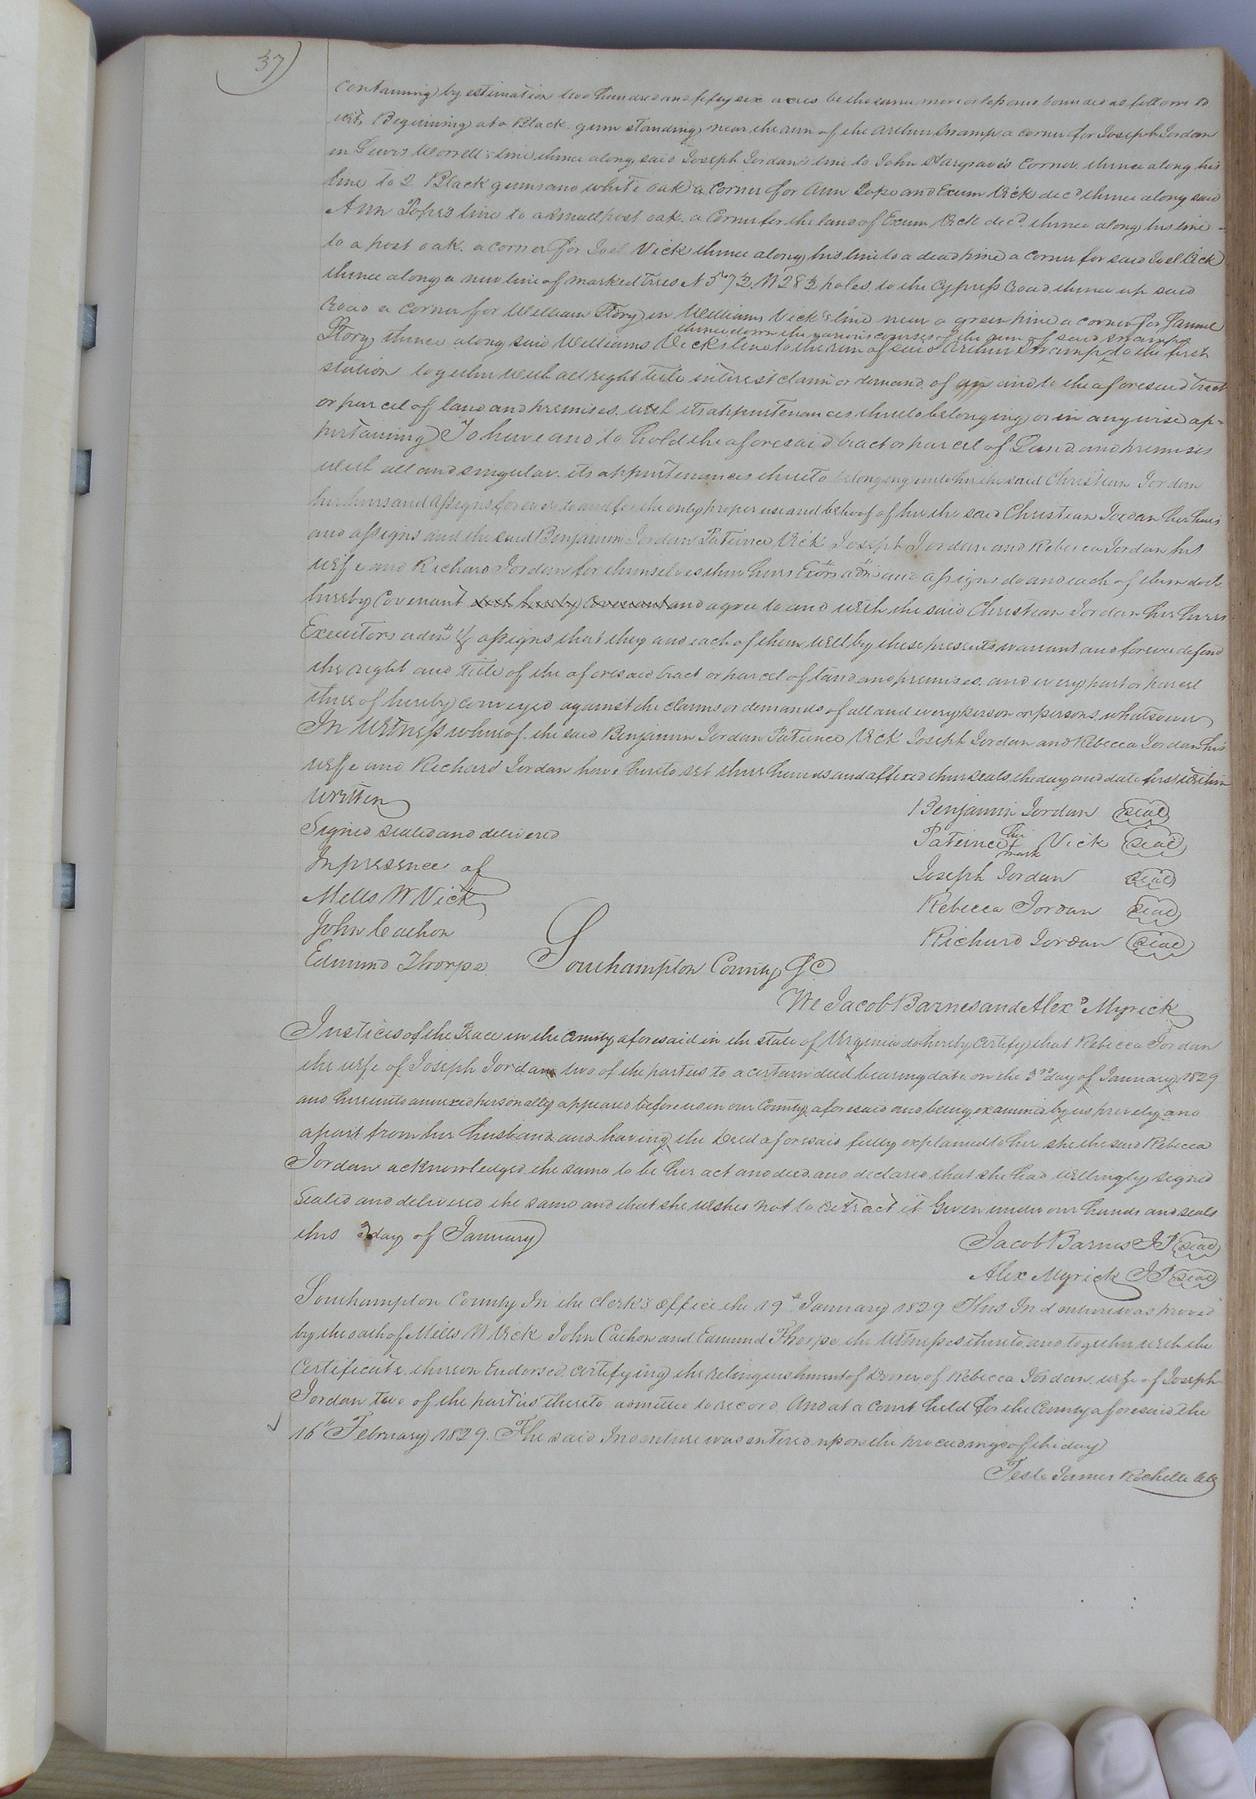 37
Containing by estimation two hundred and fifty six acres be the same more or less and bounded as follows to
wit, Beginning at a Black gum standing near the run of the Arthur Swamp a corner for Joseph Jordan
in Lewis Worrell's line thence along said Joseph Jordan's line to John Hargrave's Corner thence along his
line to 2 Black gums and white oak a Corner for Ann Pope and Exum Vick decd thence along said
Ann Popes line to a small post oak a Corner for the land of Exum Vick decd. thence along his line
to a post oak a corner for Joel Vick thence along his line to a dead pine a corner for said Joel Vick
thence along a new line of marked trees N 57½ W 282 poles to the Cypress Road thence up said
Road a corner for William Story in Williams Vick's line near a green pine a corner for Samuel
thence down the various courses of the run of said swamp
Story, thence along said Williams Vick's line to the run of said Arthur Swamp to the first
station together with all right title interest claim or demand of in and to the aforesaid tract
or parcel of land and premises with its appurtenances thereto belonging or in any wise ap-
pertaining To have and to hold the aforesaid tract or parcel of Land and premises
with all and singular its appurtenances thereto belonging unto her the said Christian Jordan
her heirs and assigns forever to and for the only proper use and behoof of her the said Christian Jordan her heirs
and assigns and the said Benjamin Jordan Patience Vick Joseph Jordan and Rebecca Jordan his
wife and Richard Jordan for themselves their heirs Exors adms and assigns do and each of them doth
hereby Covenant and hereby Covenant and agree to and with the said Christian Jordan her heirs
Executors adms & assigns that they and each of them will by these presents warrant and forever defend
the right and title of the aforesaid tract or parcel of land and premises and every part or parcel
there of hereby conveyed against the claims or demands of all and every person or persons whatsoever
In Witness whereof the said Benjamin Jordan Patience Vick Joseph Jordan and Rebecca Jordan his
wife and Richard Jordan have hereto set their hands and affixed their seals the day and date first within
written
Benjamin Jordan seal
Signed sealed and delivered
Patience her mark Vick seal
In presence of
Joseph Jordan seal
Mills W Vick
Rebecca Jordan seal
John Cathon
Richard Jordan seal
Edmund Thorpe
Southampton County Sc
We Jacob Barnes and Alexr Myrick
Justices of the Peace in the County aforesaid in the state of Virginia do hereby certify that Rebecca Jordan
the wife of Joseph Jordan two of the parties to a certain deed bearing date on the 3rd day of January 1829
and hereunto annexed personally appeared before us in our County aforesaid and being examined by us privily and
apart from her husband and having the Deed aforesaid fully explained to her she the said Rebecca
Jordan acknowledged the same to be her act and deed and declared that she had willingly signed
Sealed and delivered the same and that she wishes not to retract it Given under our hands and seals
this 3 day of January
Jacob Barnes JP seal
Alex Myrick JP seal
Southampton County In the Clerk's Office the 19th January 1829 This Indenture was proved
by the oath of Mills W Vick John Cathon and Edmund Thorpe the Witnesses thereto and together with the
Certificate thereon Endorsed certifying the relinquishment of Dower of Rebecca Jordan wife of Joseph
Jordan two of the parties thereto admitted to record And at a Court held for the County aforesaid the
16th February 1829. The said Indenture was entered upon the proceedings of the day
Teste James Rochelle Clk